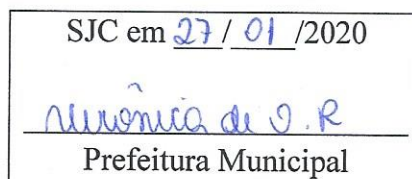 SJC em 27/ 01 /2020
Verônica de O. R
Prefeitura Municipal